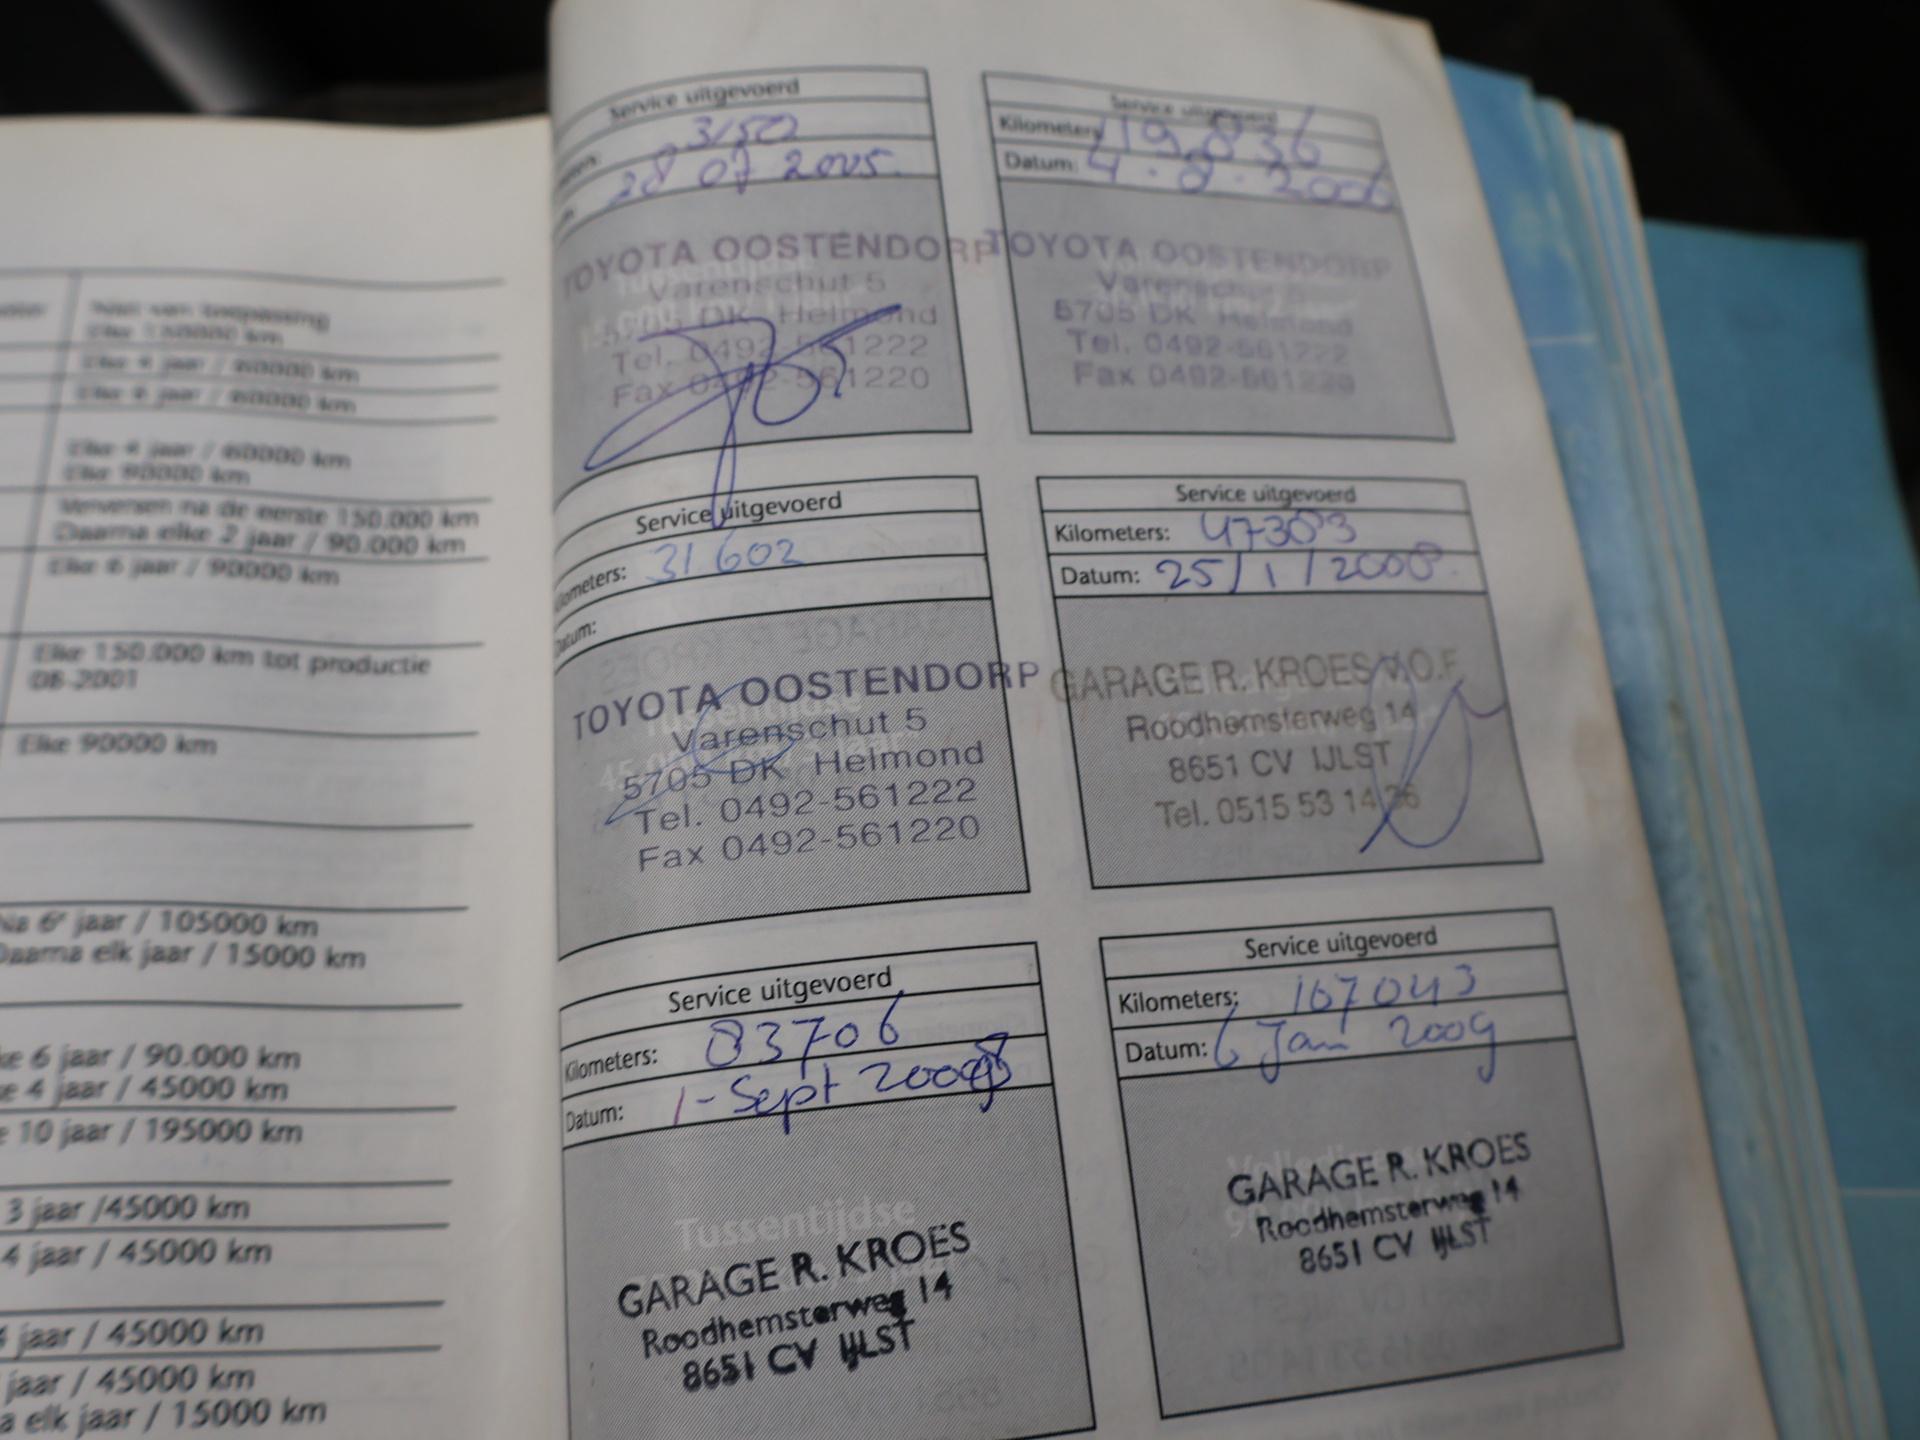 Niet van toepassing
Elke 150000 km
Elke 4 jaar / 60000 km
Elke 4 jaar / 60000 km
Elke 90000 km
Verversen na de eerste 150.000 km
Daarna elke 2 jaar / 90.000 km
Elke 6 jaar / 90000 km
Elke 150.000 km tot productie
08-2001
Elke 90000 km
Na 6e jaar / 105000 km
Daarna elk jaar / 15000 km
ke 6 jaar / 90.000 km
ke 4 jaar / 45000 km
e 10 jaar / 195000 km
3 jaar /45000 km
4 jaar / 45000 km
jaar / 45000 km
jaar / 45000 km
a elk jaar / 15000 km
Service uitgevoerd
3150
28 07 2005.
TOYOTA OOSTENDORP
Varenschut 5
5705 DK Helmond
Tel. 0492-561222
Fax 0492-561220
Service uitgevoerd
Kilometers: 19.836
Datum: 4.8.2006
TOYOTA OOSTENDORP
Varenschut 5
5705 DK Helmond
Tel. 0492-561222
Fax 0492-561220
Service uitgevoerd
Kilometers: 31602
Datum:
TOYOTA OOSTENDORP
Varenschut 5
5705 DK Helmond
Tel. 0492-561222
Fax 0492-561220
Service uitgevoerd
Kilometers: 47303
Datum: 25/1/2008.
GARAGE R. KROES V.O.F.
Roodhemsterweg 14
8651 CV IJLST
Tel. 0515 53 14 36
Service uitgevoerd
Kilometers: 83706
Datum: 1-Sept 2008
Tussentijdse
GARAGE R. KROES
Roodhemsterweg 14
8651 CV IJLST
Service uitgevoerd
Kilometers: 167043
Datum: 6 Jan 2009
GARAGE R. KROES
Roodhemsterweg 14
8651 CV IJLST